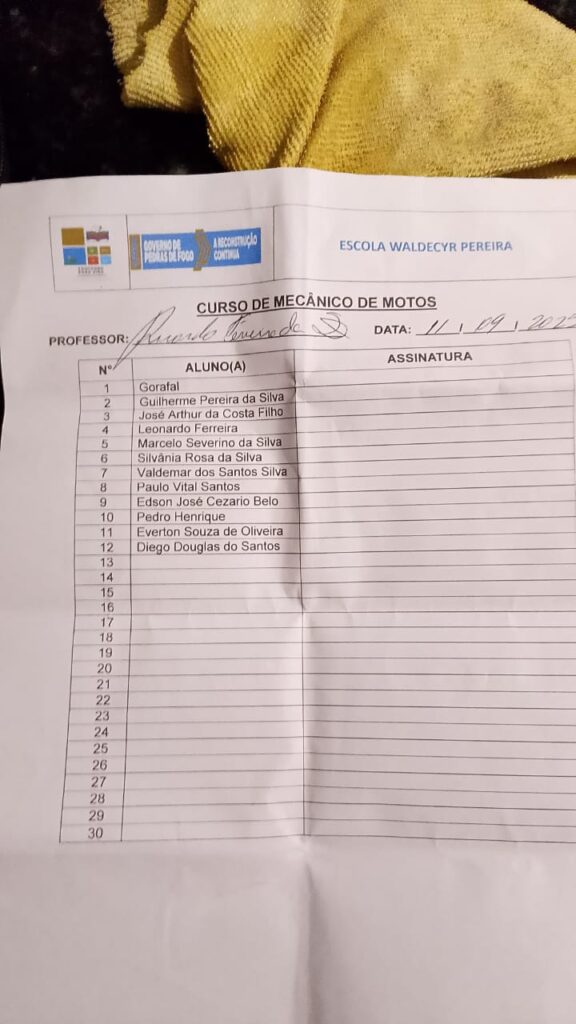 GOVERNO DE
PEDRAS DE FOGO
A RECONSTRUÇÃO
CONTINUA
ESCOLA WALDECYR PEREIRA
CURSO DE MECÂNICO DE MOTOS
PROFESSOR: Ricardo DATA: 11 / 09 / 2025
Nº ALUNO(A) ASSINATURA
1 Gorafal
2 Guilherme Pereira da Silva
3 José Arthur da Costa Filho
4 Leonardo Ferreira
5 Marcelo Severino da Silva
6 Silvânia Rosa da Silva
7 Valdemar dos Santos Silva
8 Paulo Vital Santos
9 Edson José Cezario Belo
10 Pedro Henrique
11 Everton Souza de Oliveira
12 Diego Douglas do Santos
13
14
15
16
17
18
19
20
21
22
23
24
25
26
27
28
29
30